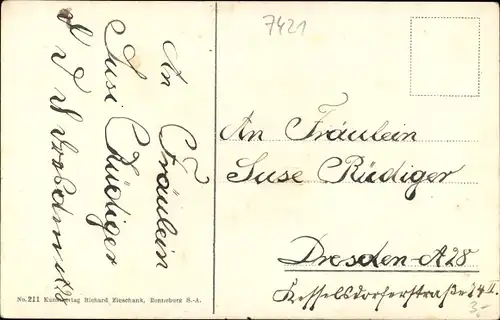 7421
An Fräulein
Susi Rüdiger
Dresden
An Fräulein
Suse Rüdiger
Dresden-A28
Kesselsdorferstraße
No. 211 Kunstverlag Richard Zieschank, Ronneburg S.-A.
3.-